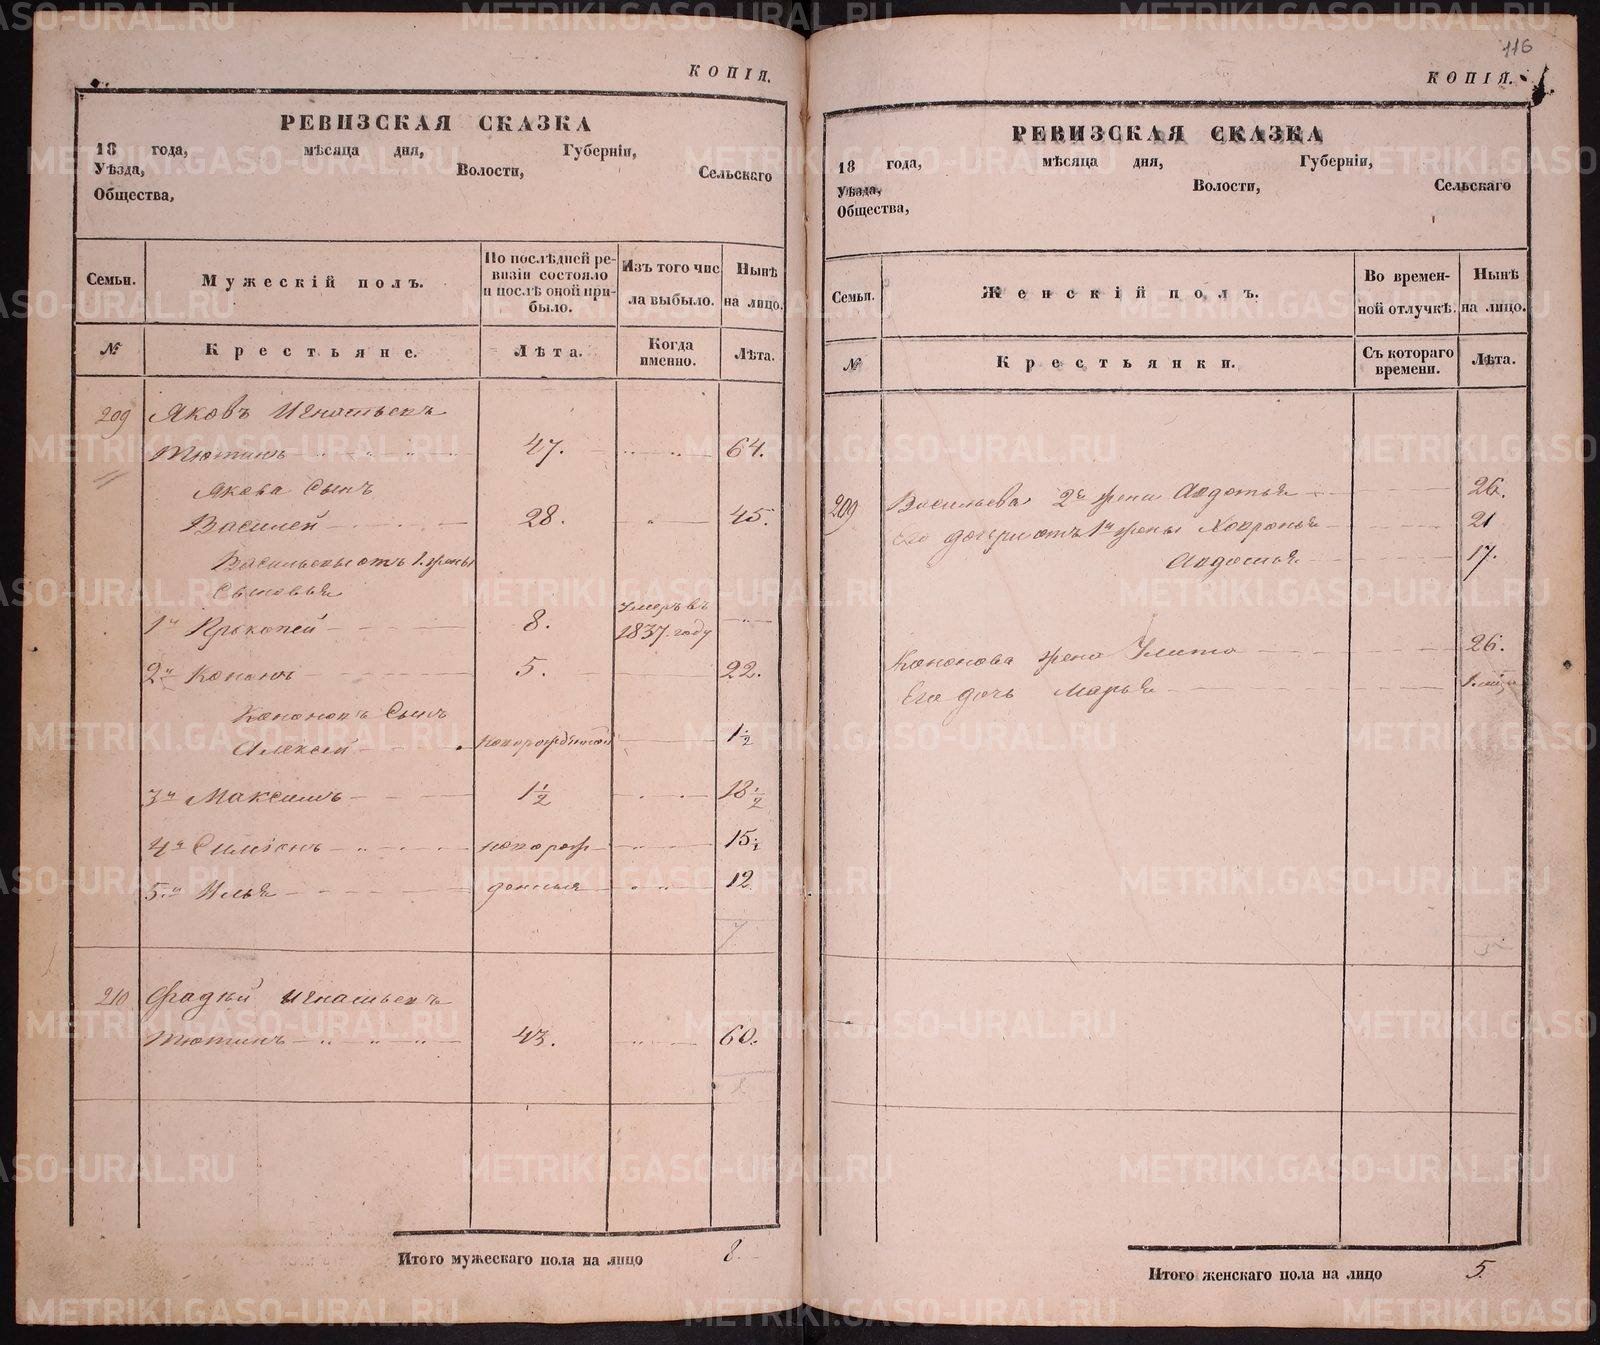 КОПІЯ.
РЕВИЗСКАЯ СКАЗКА
18 года, мѣсяца дня, Губерніи,
Уѣзда, Волости, Сельскаго
Общества,
Семьи. Мужескій полъ. По послѣдней ревизіи состояло и послѣ оной прибыло. Изъ того числа выбыло. Нынѣ на лицо.
№ Крестьяне. Лѣта. Когда именно. Лѣта.
209 Яковъ Игнатьевъ
Тютинъ 47. 64.
Якова Сынъ
Василей 28. 45.
Васильевы отъ 1. жены
Сыновья
1й Прокопей 8. Умеръ въ 1837. году
2й Кононъ 5. 22.
Кононовъ Сынъ
Алексей новорожденной 1½
3й Максимъ 1½ 18½
4й Симіонъ новорож 15.
5й Илья денныя 12
7
210 Фадѣй Игнатьевъ
Тютинъ 43. 60.
1
Итого мужескаго пола на лицо 8
116
КОПІЯ.
РЕВИЗСКАЯ СКАЗКА
18 года, мѣсяца дня, Губерніи,
Уѣзда, Волости, Сельскаго
Общества,
Семьи. Женскій полъ. Во временной отлучкѣ. Нынѣ на лицо.
№ Крестьянки. Съ котораго времени. Лѣта.
209 Васильева 2я жена Авдотья 26.
Его дочери отъ 1й жены Хавронья 21
Авдотья 17.
Кононова жена Улита 26.
Его дочь Марья
5
Итого женскаго пола на лицо 5.
METRIKI.GASO-URAL.RU